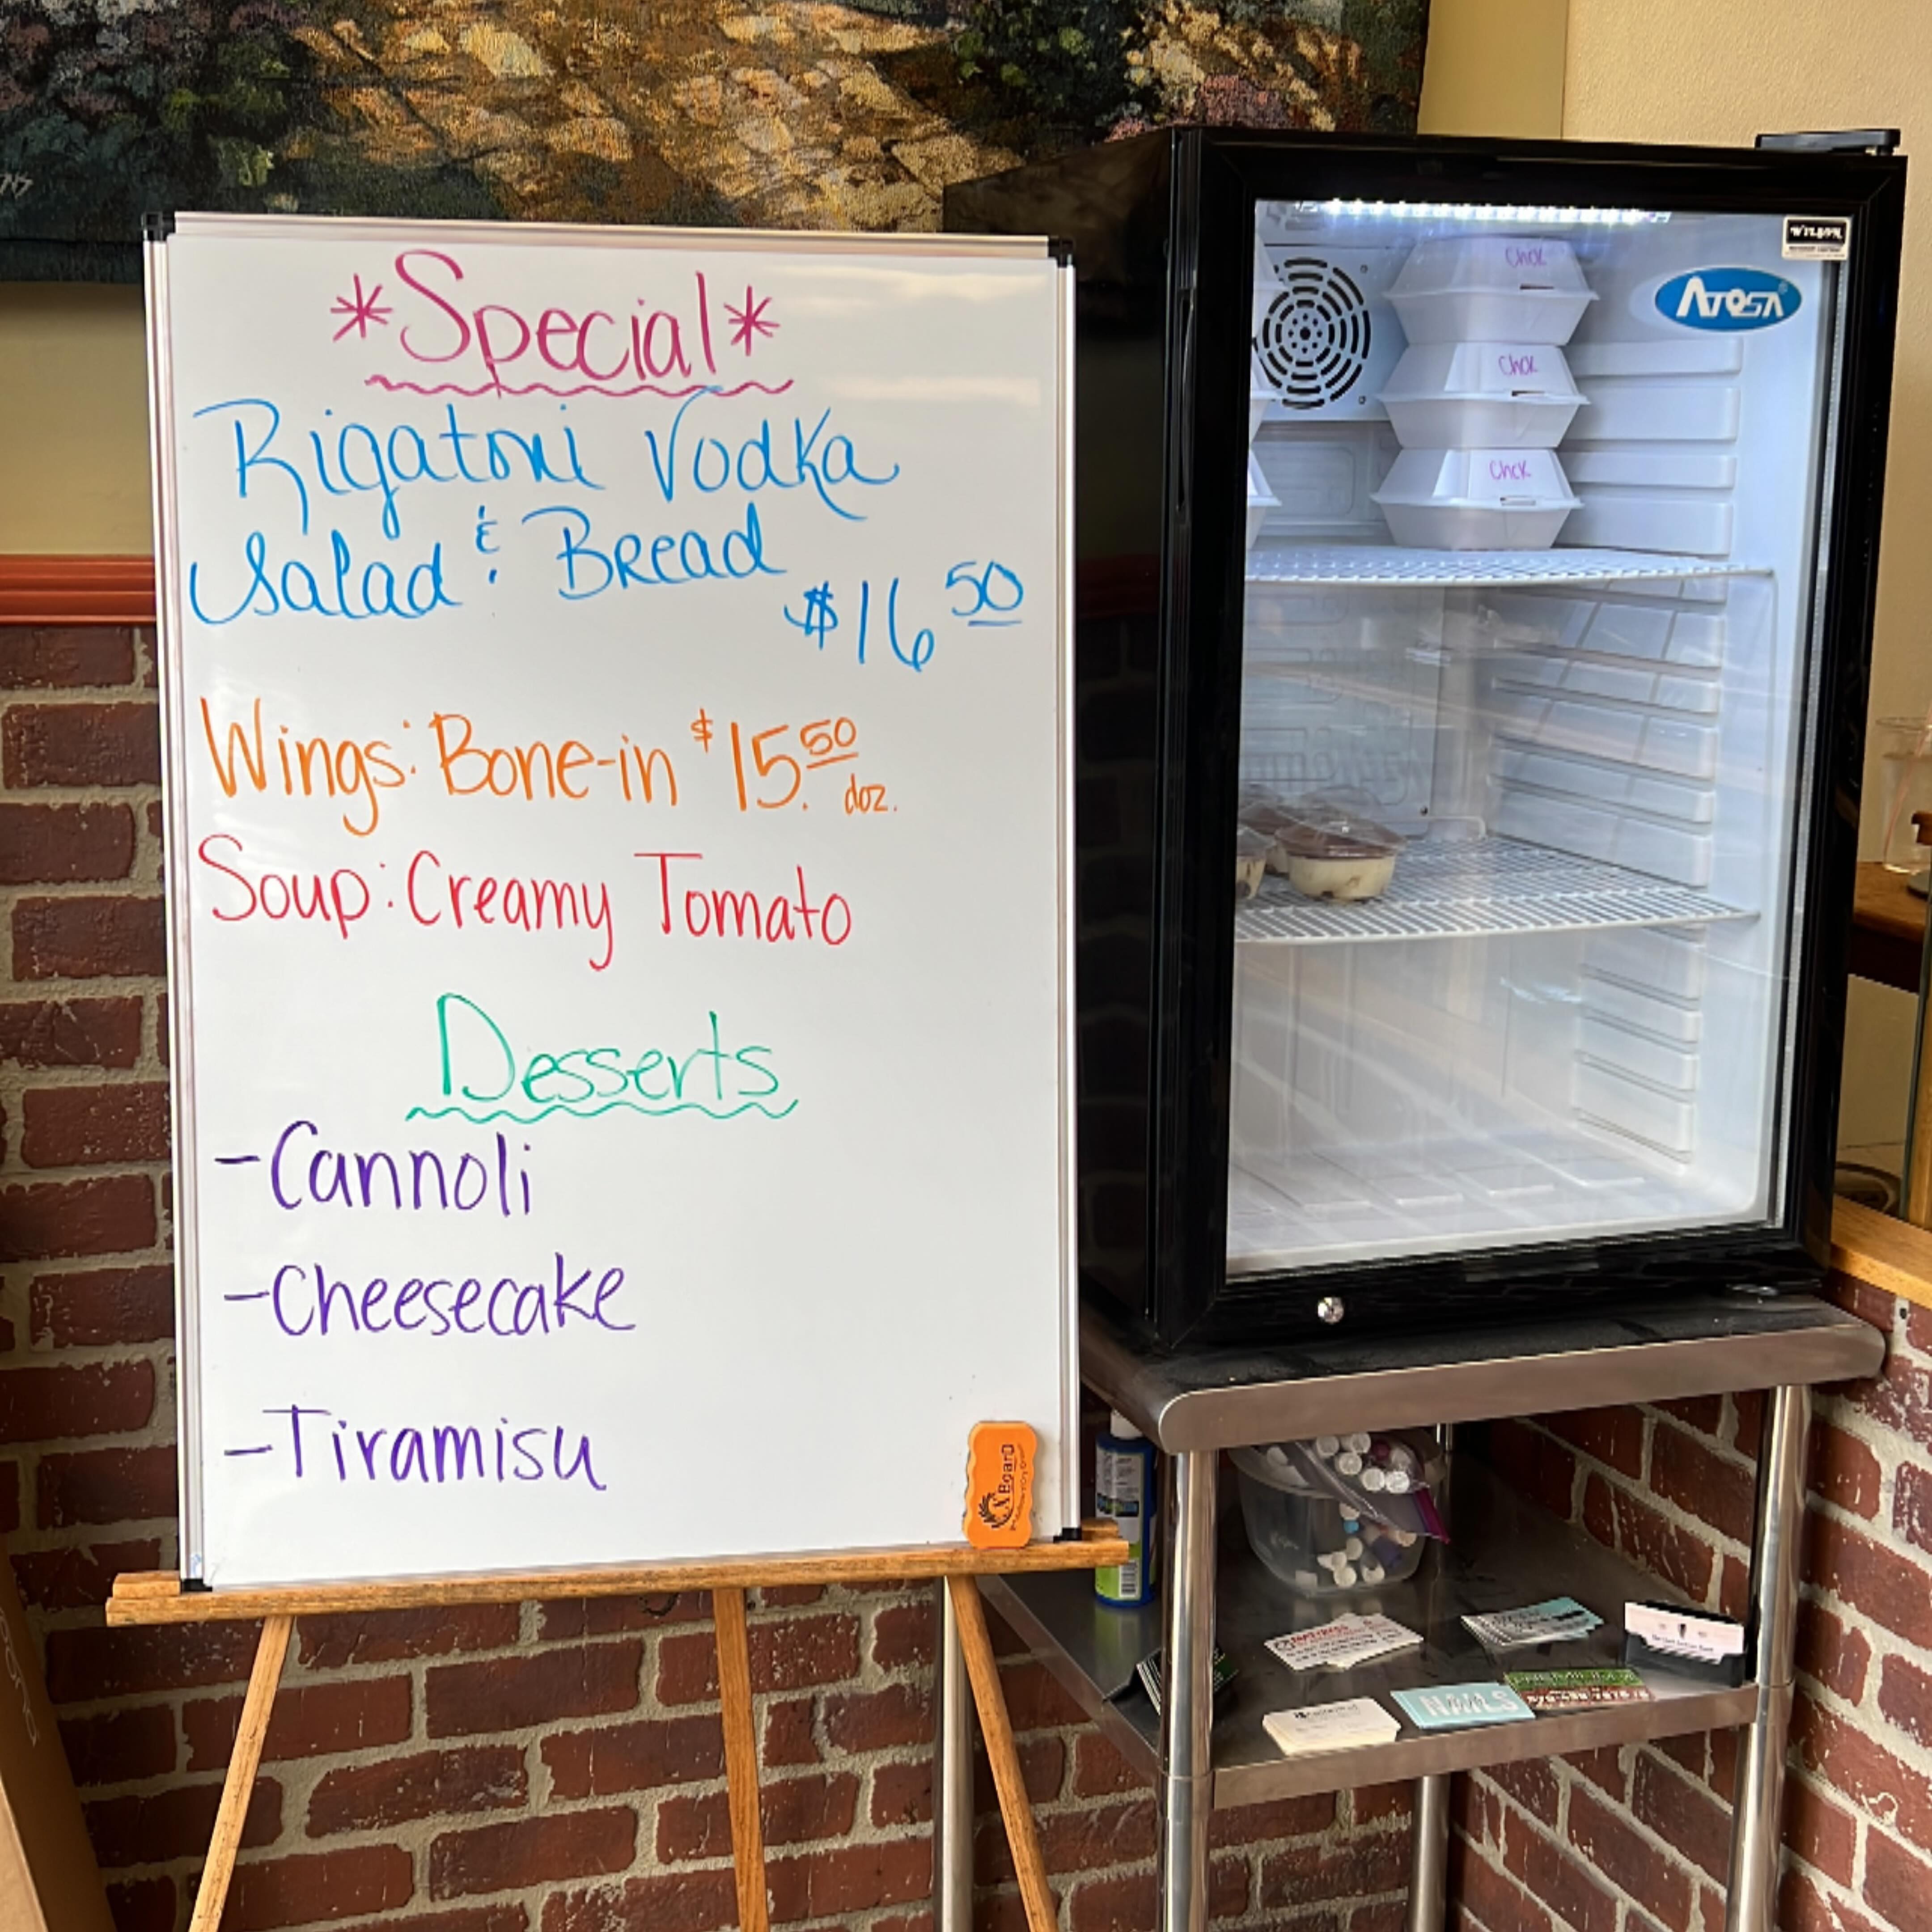 *Special*
Rigatoni Vodka
Salad & Bread
$16 50
Wings: Bone-in $15.50 doz.
Soup: Creamy Tomato
Desserts
-Cannoli
-Cheesecake
-Tiramisu
X Board
Chck
Chck
Chck
ATOSA
NAILS